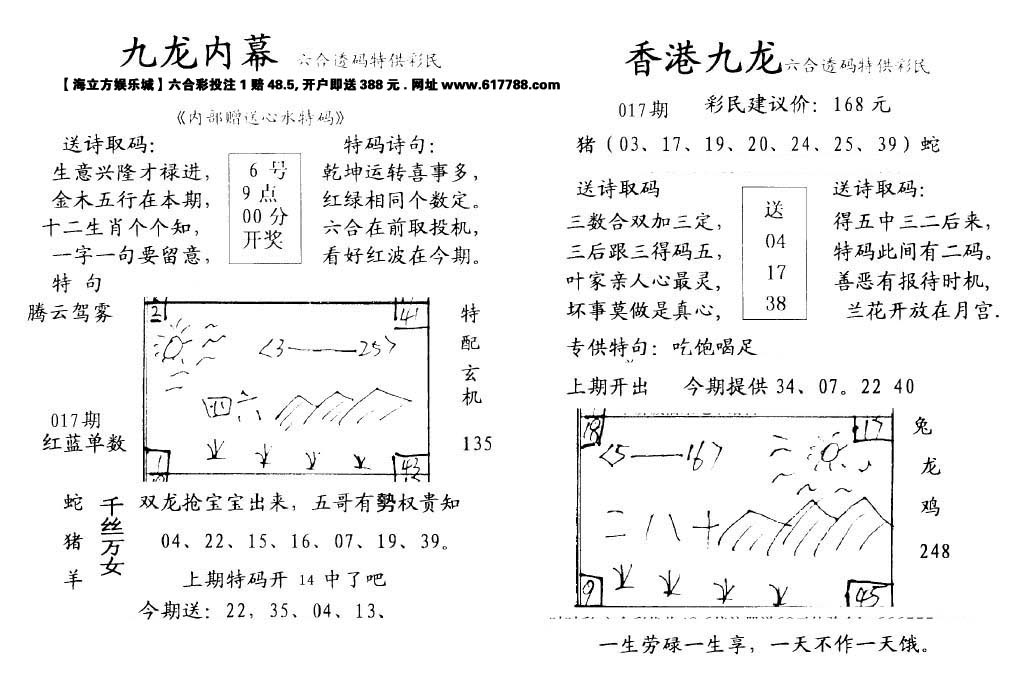 九龙内幕 六合透码特供彩民
【海立方娱乐城】六合彩投注1赔48.5,开户即送388元.网址www.617788.com
《内部赠送心水特码》
送诗取码:
生意兴隆才禄进,
金木五行在本期,
十二生肖个个知,
一字一句要留意,
6号
9点
00分
开奖
特码诗句:
乾坤运转喜事多,
红绿相同个数定。
六合在前取投机,
看好红波在今期。
特句
腾云驾雾
017期
红蓝单数
21
41
<3——25>
四六
1
43
特
配
玄
机
135
蛇
猪
羊
千丝万女
双龙抢宝宝出来,五哥有勢权贵知
04、22、15、16、07、19、39。
上期特码开 14 中了吧
今期送: 22, 35、04、13、
香港九龙 六合透码特供彩民
017期 彩民建议价: 168元
猪(03、17、19、20、24、25、39)蛇
送诗取码
三数合双加三定,
三后跟三得码五,
叶家亲人心最灵,
坏事莫做是真心,
送
04
17
38
送诗取码:
得五中三二后来,
特码此间有二码。
善恶有报待时机,
兰花开放在月宫.
专供特句: 吃饱喝足
上期开出 今期提供 34、07。22 40
18
17
<5——16>
二八十
9
45
兔
龙
鸡
248
一生劳碌一生享, 一天不作一天饿。